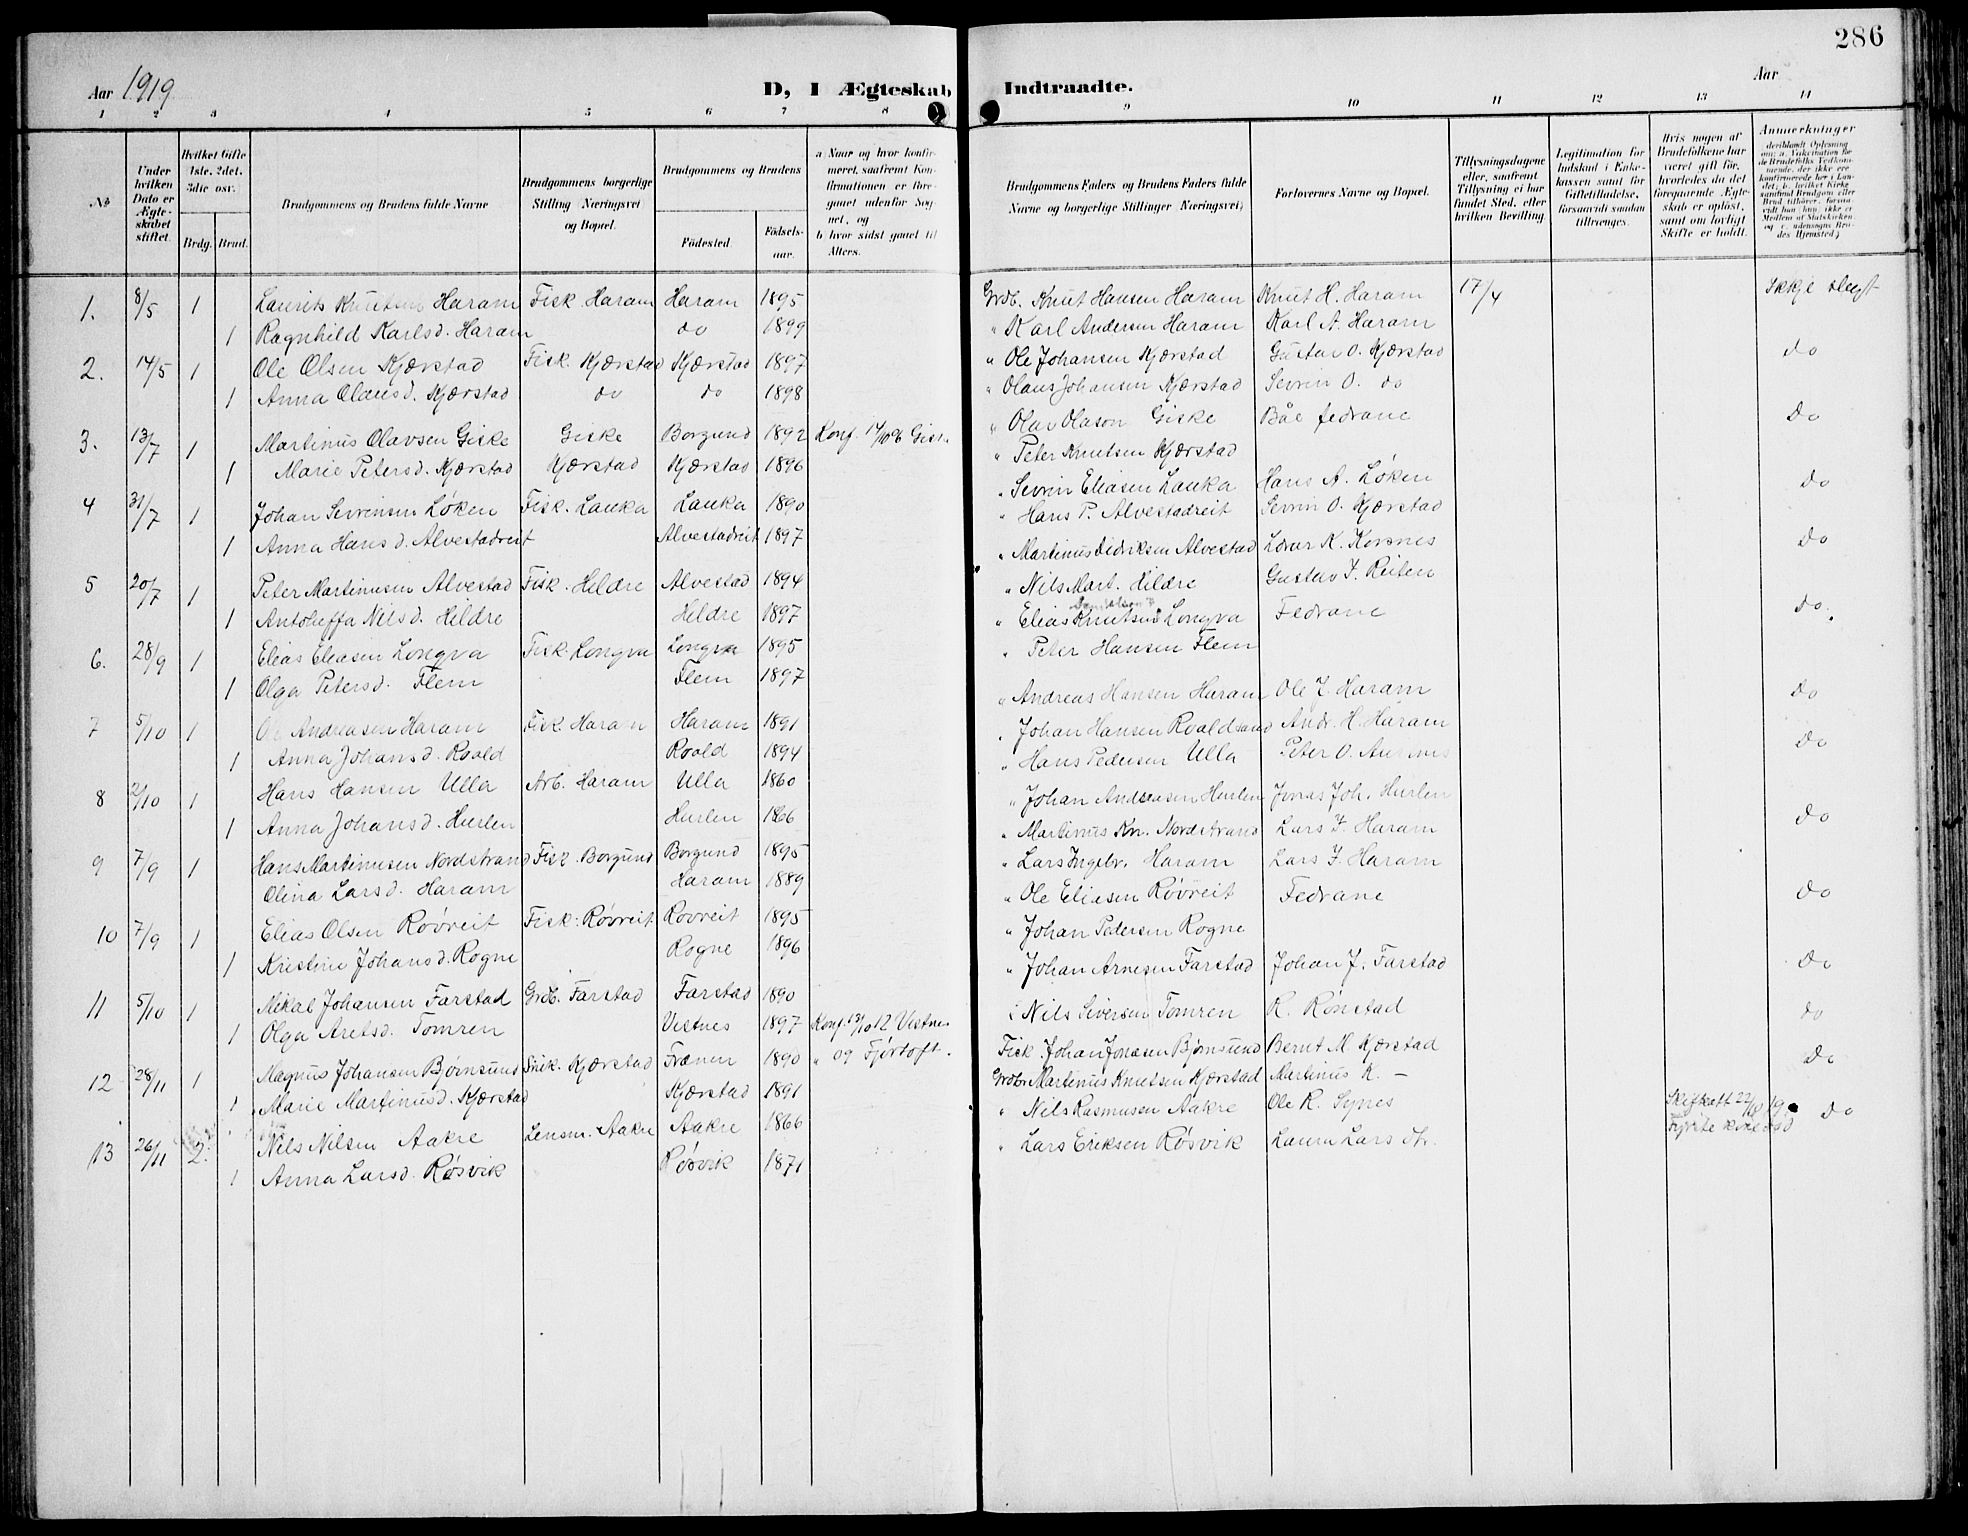 286
Aar 1919 D, I Ægteskab Indtraadte. Aar
1 2 3 4 5 6 7 8 9 10 11 12 13 14
No
Under hvilken Dato er Ægteskabet stiftet.
Hvilket Gifte 1ste, 2det, 3die osv.
Brdg. Brud.
Brudgommens og Brudens fulde Navne
Brudgommens borgerlige Stilling Næringsvei og Bopæl.
Brudgommens og Brudens
Födested. Födselsaar.
a Naar og hvor konfirmeret, saafremt Konfirmationen er foregaaet udenfor Sognet, og
b hvor sidst gaaet til Alters.
Brudgommens Faders og Brudens Faders fulde Navne og borgerlige Stillinger Næringsvei)
Forlovernes Navne og Bopæl.
Tillysningsdagene eller, saafremt Tillysning ei har fundet Sted, efter hvilken Bevilling.
Legitimation for Indskud i Enkekassen samt for Giftetilladelse, forsaavidt saadan tiltrænges.
Hvis nogen af Brudefolkene har været gift før, hvorledes da det foregaaende Ægteskab er oplöst, samt om lovligt Skifte er holdt.
Anmerkninger
1. 8/5 1 Laurits Knutsen Haram Fisk Haram Haram 1895 Grdb. Knut Hansen Haram Knut H. Haram 17/4 Ikkje slegt
1 Ragnhild Karlsd. Haram do 1899 " Karl Andersen Haram Karl A. Haram
2. 14/5 1 Ole Olsen Kjærstad Fisk. Kjærstad Kjærstad 1897 " Ole Johansen Kjærstad Gustav O. Kjærstad do
1 Anna Olausd. Kjærstad do do 1898 " Olaus Johansen Kjærstad Sevrin O. do
3. 13/7 1 Martinus Olavsen Giske Giske Borgund 1892 Konf. 14/10 06 Gisk. " Olav Olason Giske Båe fedrane do
1 Marie Petersd. Kjærstad Kjærstad Kjærstad 1896 " Peter Knutsen Kjærstad
4 31/7 1 Johan Sevrinsen Løken Fisk. Lauka Lauka 1890 " Sevrin Eliasen Lauka Hans A. Løken do
1 Anna Hansd. Alvestadreit Alvestadreit 1897 " Hans P. Alvestadreit Sevrin O. Kjærstad
5 20/7 1 Peter Martinusen Alvestad Fisk. Hildre Alvestad 1894 " Martinus Didriksen Alvestad K. Korsnes do
1 Nilsd. Hildre Hildre 1897 " Nils Mart. Hildre Gustav I. Reiten
6. 28/9 1 Elias Eliasen Longva Fisk. Longva Longva 1895 " Elias Knutsen Longva Fedrane do.
1 Olga Petersd. Flem Flem 1897 " Peter Hansen Flem
7 5/10 1 Andreasen Haram Fisk. Haram Haram 1891 " Andreas Hansen Haram Ole I. Haram do
1 Anna Johansd. Roald Roald 1894 " Johan Hansen Roaldsand Andr. H. Haram
8 2/10 1 Hans Hansen Ulla Arb. Haram Ulla 1860 " Hans Pedersen Ulla Peter O. do
1 Anna Johansd. Hurlen Hurlen 1866 " Johan Andreasen Hurlen Jonas Joh. Hurlen
9 7/9 1 Hans Martinusen Nordstrand Fisk. Borgund Borgund 1895 " Martinus Kn. Nordstrand Lars I. Haram do
Olina Larsd. Haram Haram 1889 " Lars Ingebr. Haram Lars I. Haram
10 7/9 1 Elias Olsen Røvreit Fisk. Røvreit Rovreit 1895 " Ole Eliasen Røvreit Fedrane do
1 Kristine Johansd. Rogne Rogne 1896 " Johan Pedersen Rogne
11 5/10 1 Mikal Johansen Farstad Grdb. Farstad Farstad 1890 " Johan Arnesen Farstad Johan J. Farstad do
1 Olga Tomren Vestnes 1897 Konf. 13/10 12 Vestnes " Nils Siversen Tomren R. Rønstad do
12 28/11 1 Magnus Johansen Bjørnsund Snik. Kjærstad Frænen 1890 " 09 Fjørtoft. Fisk. Johan Jonassen Bjørnsund Bernt M. Kjærstad do
1 Marie Martinusd. Kjærstad Kjærstad 1891 Grdbr Martinus Knutsen Kjærstad Martinus K. –
13 26/11 2. Nils Nilsen Aakre Lensm. Aakre Aakre 1866 " Nils Rasmussen Aakre Ole R. Synes do
1 Anna Larsd. Røsvik Røsvik 1871 " Lars Eriksen Røsvik